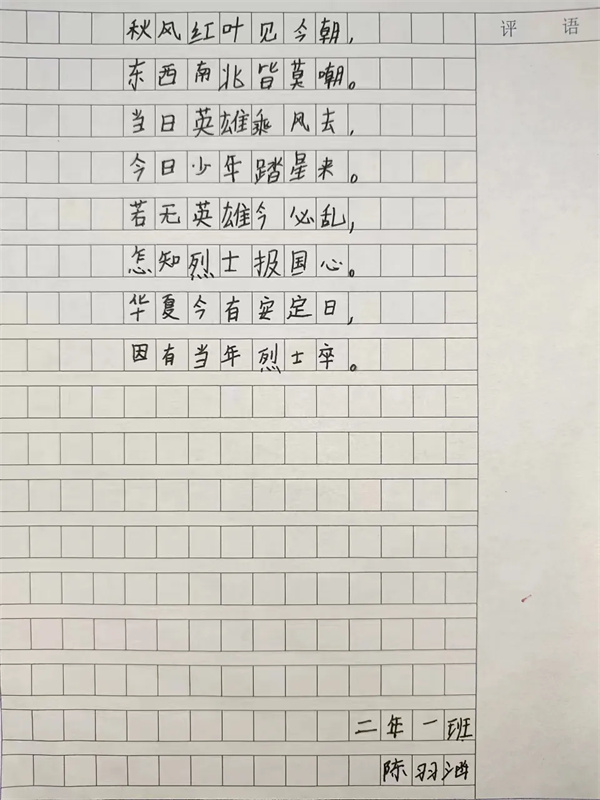 评 语
秋风红叶见今朝，
东西南北皆莫嘲。
当日英雄乘风去，
今日少年踏星来。
若无英雄今必乱，
怎知烈士报国心。
华夏今有安定日，
因有当年烈士卒。
二年一班
陈羽